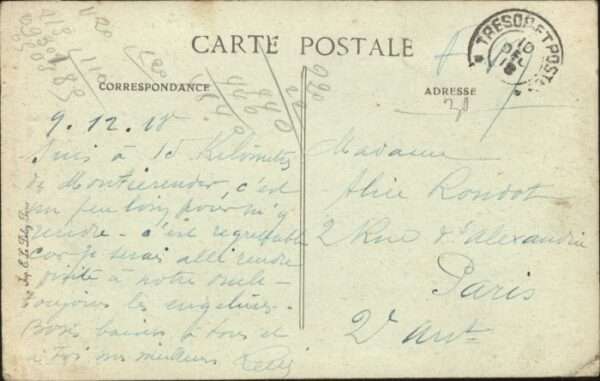 CARTE POSTALE
CORRESPONDANCE
ADRESSE
TRESOR ET POSTES
10
18
9.12.18
Suis à 15 Kilomètres
de Montierender, c'est
un peu loin pour m'y
rendre - c'est regrettable
car je serais allé rendre
visite à notre oncle -
toujours les engelures -
Bons baisers à tous et
à toi mes meilleurs
Madame
Alice Rondot
2 Rue d'Alexandrie
Paris
2e arrt